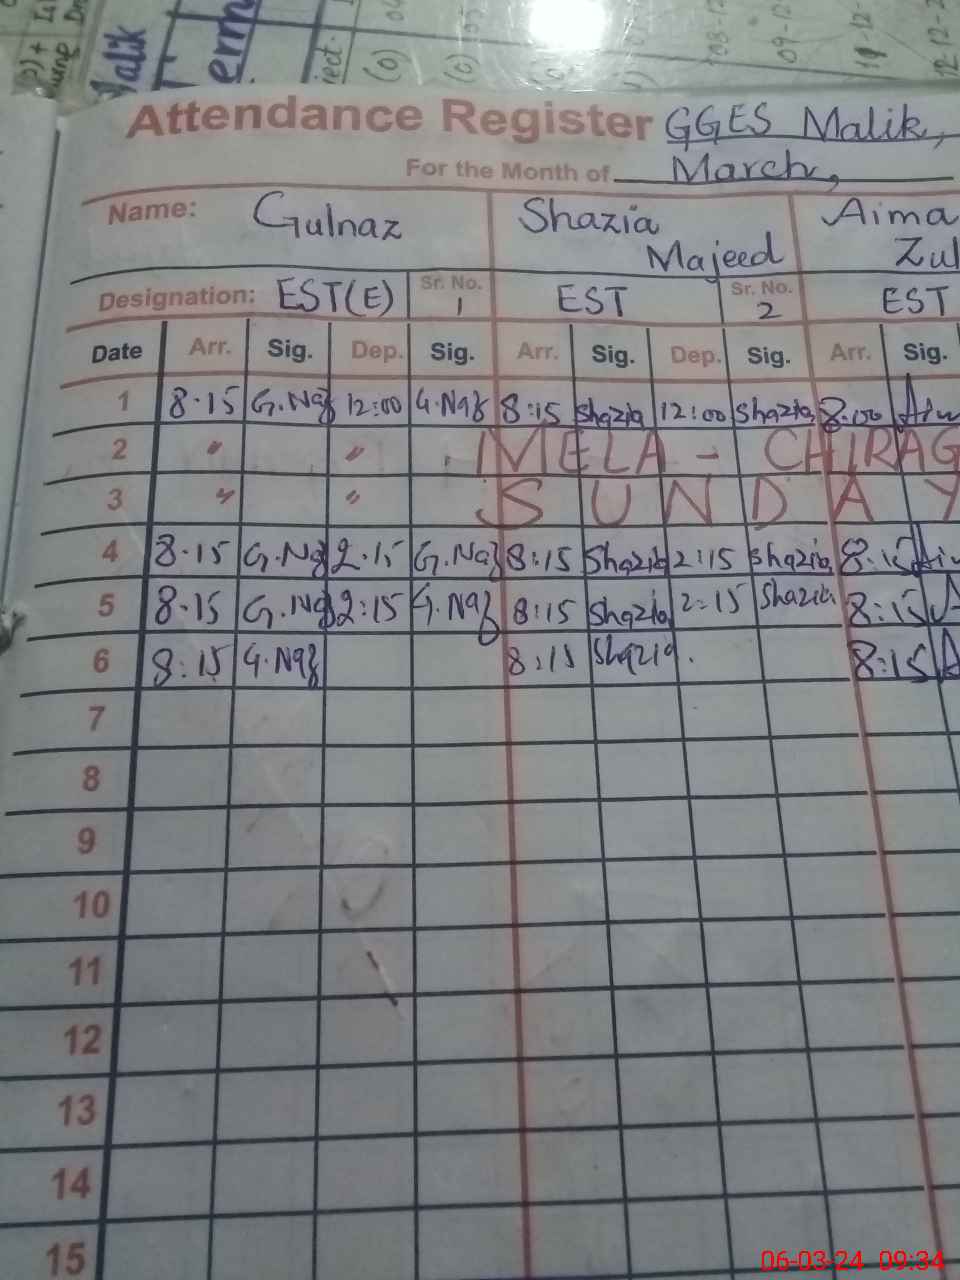 Attendance Register GGES Malik,
For the Month of March,
Name: Gulnaz Shazia Majeed Aima Zul
Designation: EST(E) Sr. No. 1 EST Sr. No. 2 EST
Date Arr. Sig. Dep. Sig. Arr. Sig. Dep. Sig. Arr. Sig.
1 8·15 G.Naz 12:00 G.Naz 8:15 Shazia 12:00 Shazia 8:00
2 " " MELA - CHIRAG
3 " " SUNDAY
4 8·15 G.Naz 2·15 G.Naz 8:15 Shazia 2:15 Shazia 8:15
5 8·15 G.Naz 2:15 G.Naz 8:15 Shazia 2:15 Shazia 8:15
6 8:15 G.Naz 8:15 Shazia. 8:15
7
8
9
10
11
12
13
14
15
06-03-24 09:34